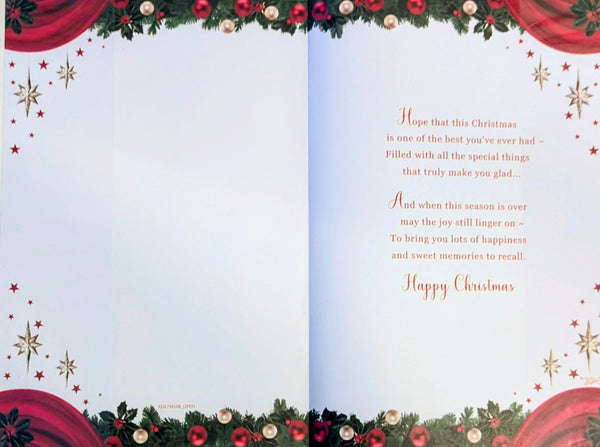 Hope that this Christmas
is one of the best you've ever had ~
Filled with all the special things
that truly make you glad...
And when this season is over
may the joy still linger on ~
To bring you lots of happiness
and sweet memories to recall.
Happy Christmas